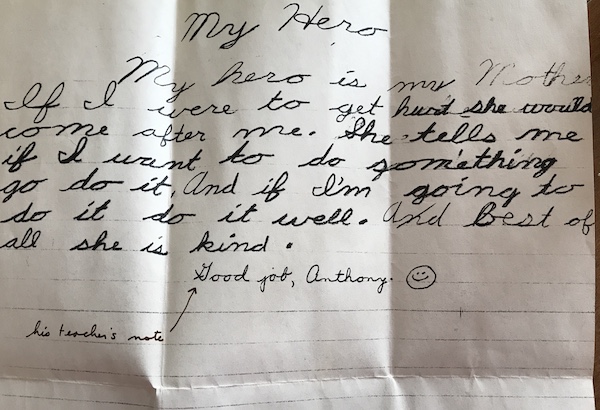 My Hero
My hero is my Mother
If I were to get hurt she would
come after me. She tells me
if I want to do something
go do it. And if I'm going to
do it do it well. And best of
all she is kind.
Good job, Anthony.
his teacher's note